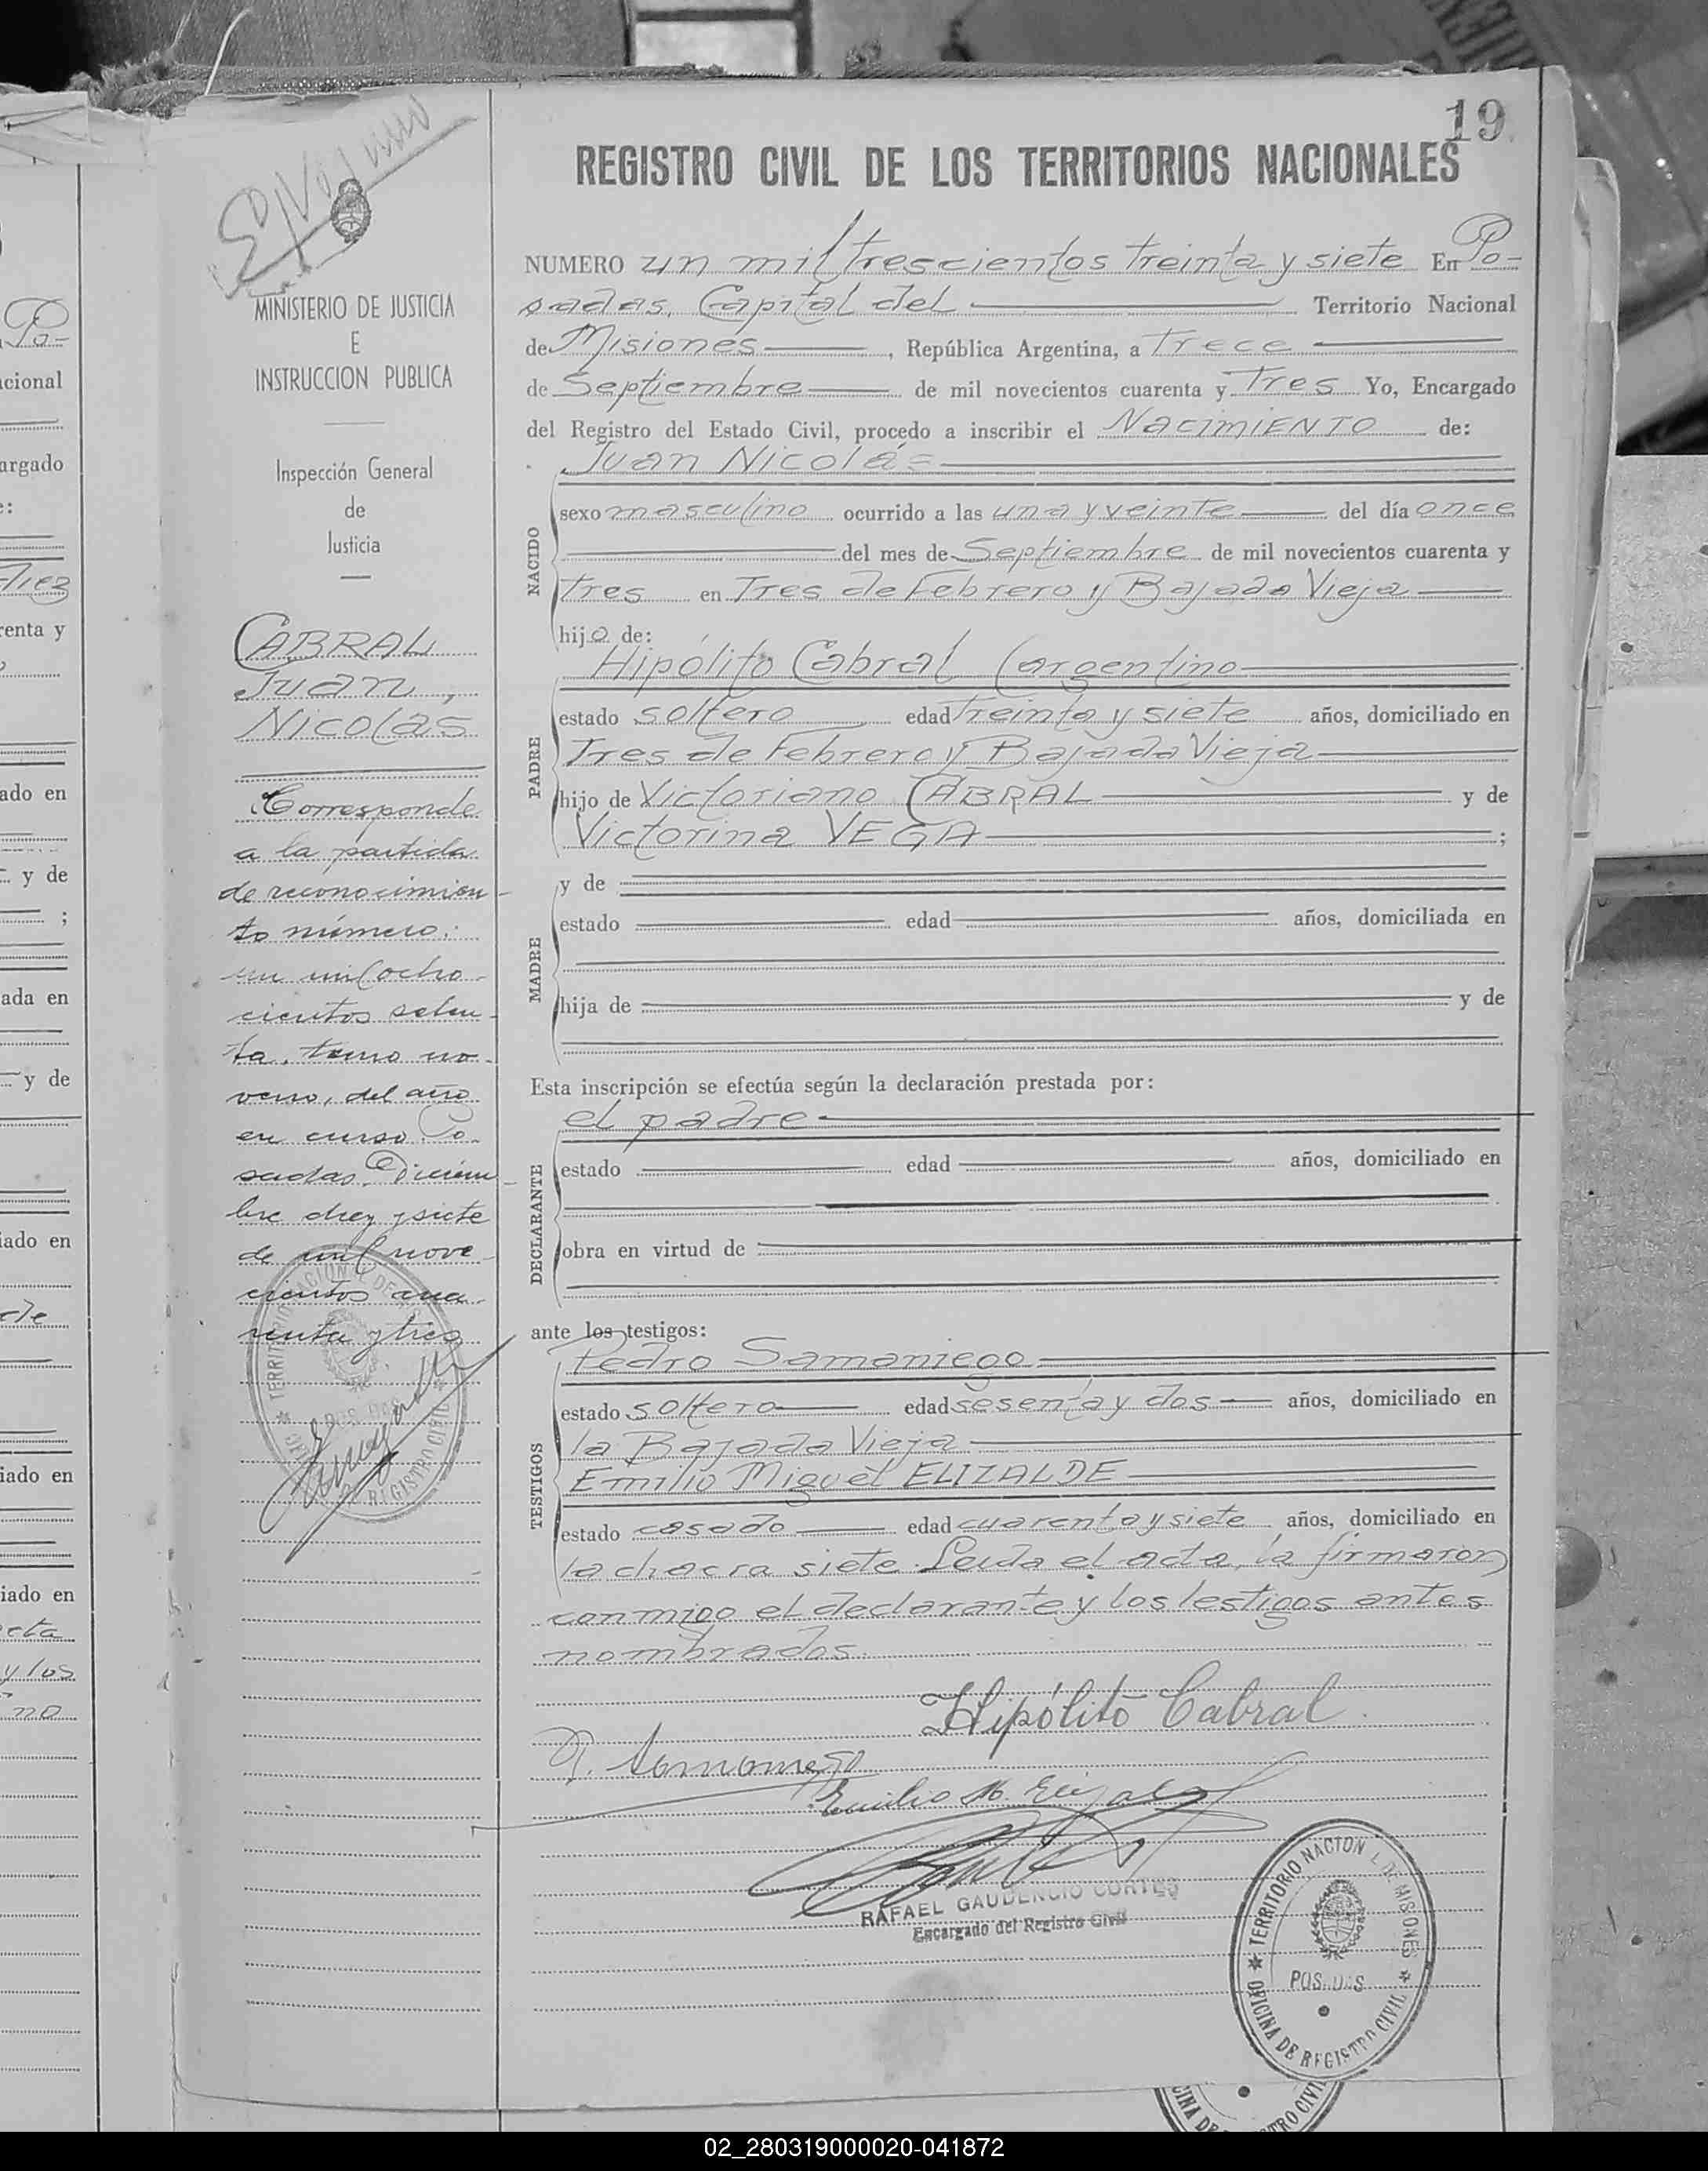 19
REGISTRO CIVIL DE LOS TERRITORIOS NACIONALES
NUMERO un mil trescientos treinta y siete En Po-
sadas, Capital del Territorio Nacional
de Misiones, República Argentina, a Trece
de Septiembre de mil novecientos cuarenta y Tres Yo, Encargado
del Registro del Estado Civil, procedo a inscribir el NACIMIENTO de:
Juan Nicolás
NACIDO
sexo masculino ocurrido a las una y veinte del día once
del mes de Septiembre de mil novecientos cuarenta y
tres en Tres de Febrero y Bajada Vieja
hijo de:
Hipólito Cabral (argentino
PADRE
estado soltero edad treinta y siete años, domiciliado en
Tres de Febrero y Bajada Vieja
hijo de Victoriano CABRAL y de
Victorina VEGA ;
MADRE
y de
estado edad años, domiciliada en
hija de y de
Esta inscripción se efectúa según la declaración prestada por:
el padre
DECLARANTE
estado edad años, domiciliado en
obra en virtud de
ante los testigos:
Pedro Samaniego
TESTIGOS
estado soltero edad sesenta y dos años, domiciliado en
la Bajada Vieja
Emilio Miguel ELIZALDE
estado casado edad cuarenta y siete años, domiciliado en
la chacra siete. Leída el acta, la firmaron
conmigo el declarante y los testigos antes
nombrados.
Hipólito Cabral
P. Samaniego
Emilio M. Elizalde
RAFAEL GAUDENCIO CORTES
Encargado del Registro Civil
TERRITORIO NACIONAL DE MISIONES
POSADAS
OFICINA DE REGISTRO CIVIL
MINISTERIO DE JUSTICIA
E
INSTRUCCION PUBLICA
Inspección General
de
Justicia
CABRAL
Juan,
Nicolas
Corresponde
a la partida
de reconocimien-
to número:
un mil ocho-
cientos seten-
ta, tomo no-
veno, del año
en curso. Po-
sadas, Diciem-
bre diez y siete
de mil nove-
cientos cua-
renta y tres
02_280319000020-041872